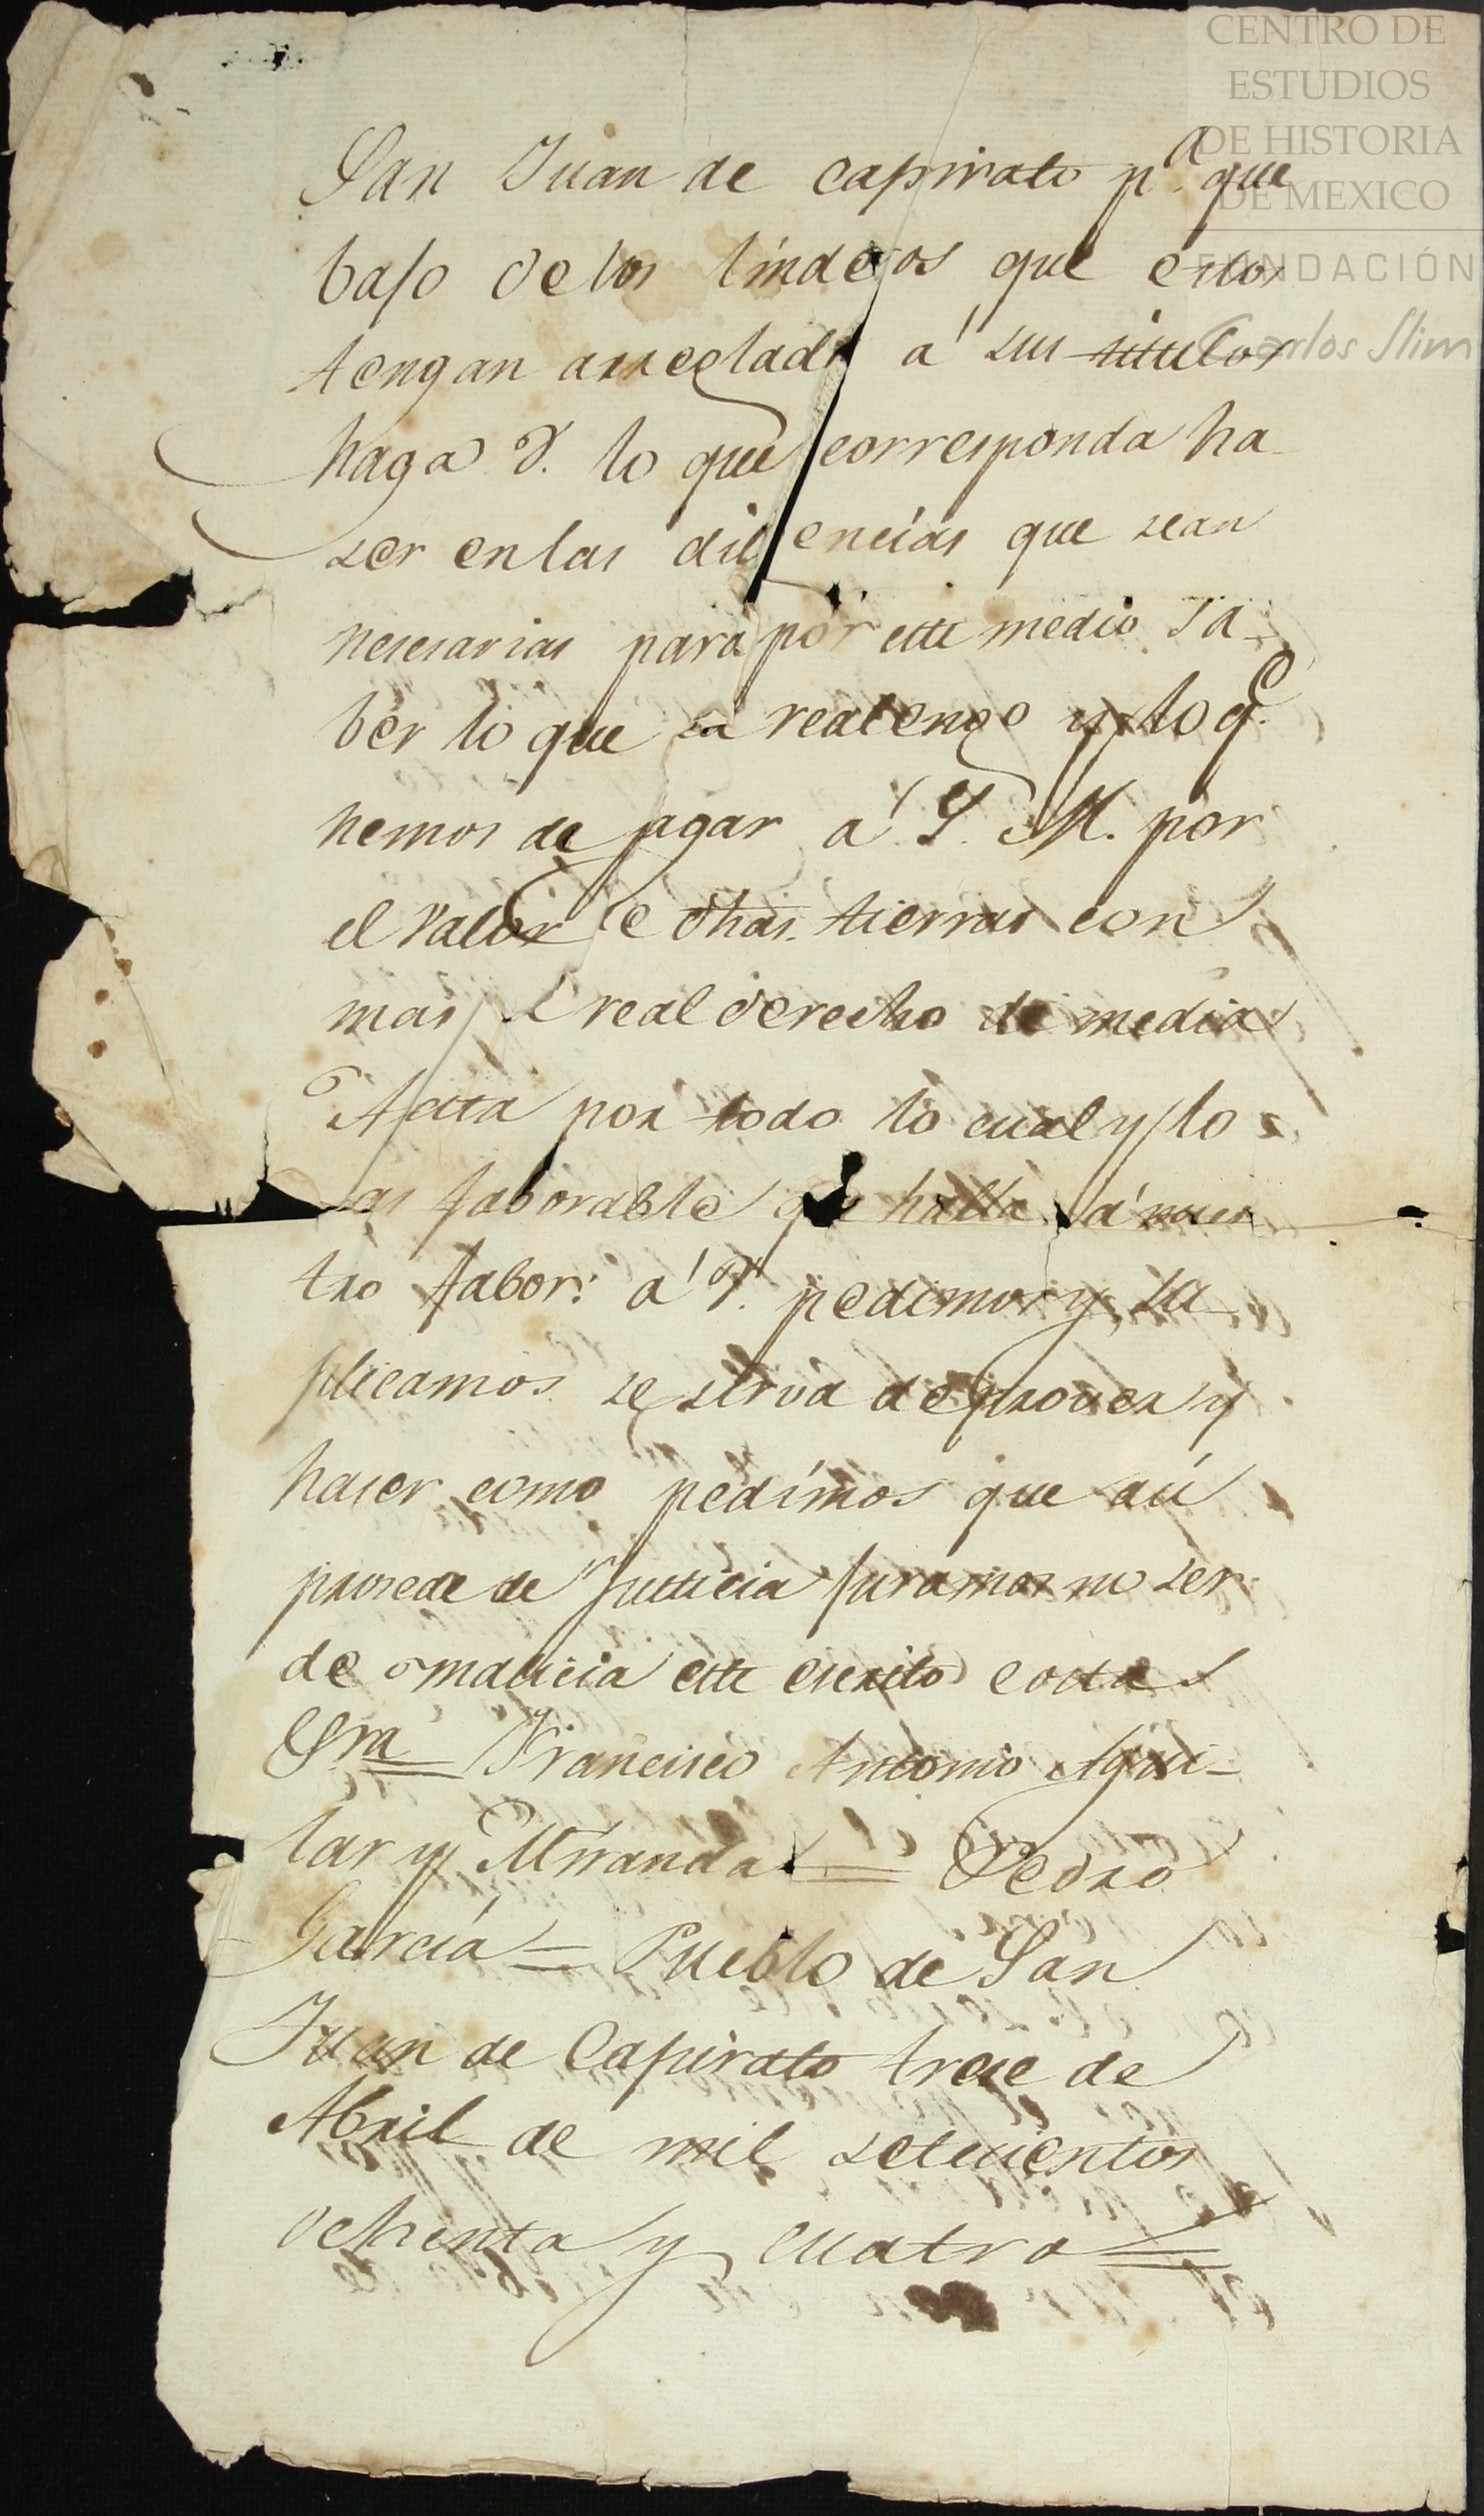 CENTRO DE
ESTUDIOS
DE HISTORIA
DE MEXICO
FUNDACIÓN
Carlos Slim
San Juan de capirato p.ª que
bajo de los linderos que estos
tengan arreglad á sus titulos
haga V. lo que corresponda ha-
ser en las dil encias que sean
nesesarias para por este medio sa-
ber lo que sea realengo y lo q.e
hemos de pagar á S. M. por
el valor e dhas. tierras con
mas l real derecho de media
Anatta por todo lo cual y lo
as faborable que halla á nues
tro fabor: á V. pedimos y su-
plicamos se sirva de prover y
haser como pedimos que así
prosede de justicia juramos no ser
de malicia este escrito costas
Ffra Francisco Antonio Agui-
lar y Miranda = Pedro
Garcia = Pueblo de San
Juan de Capirato trese de
Abril de mil setecientos
ochenta y cuatro =